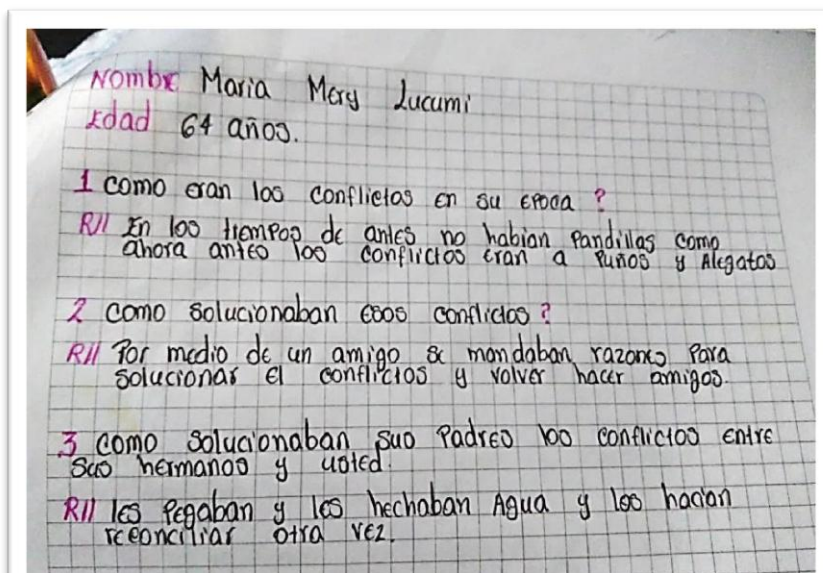 Nombre Maria Mery Lucumi
Edad 64 años.
1 como eran los conflictos en su epoca ?
R// En los tiempos de antes no habian Pandillas como
ahora antes los conflictos eran a Puños y Alegatos
2 como solucionaban esos conflictos ?
R// Por medio de un amigo se mandaban razones Para
solucionar el conflictos y volver hacer amigos.
3 como solucionaban sus Padres los conflictos entre
sus hermanos y usted.
R// les Pegaban y les hechaban Agua y los hacian
reconciliar otra vez.